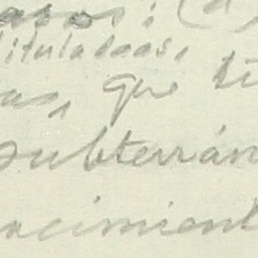 tituladas,
as, que ti
subterrán
acimient